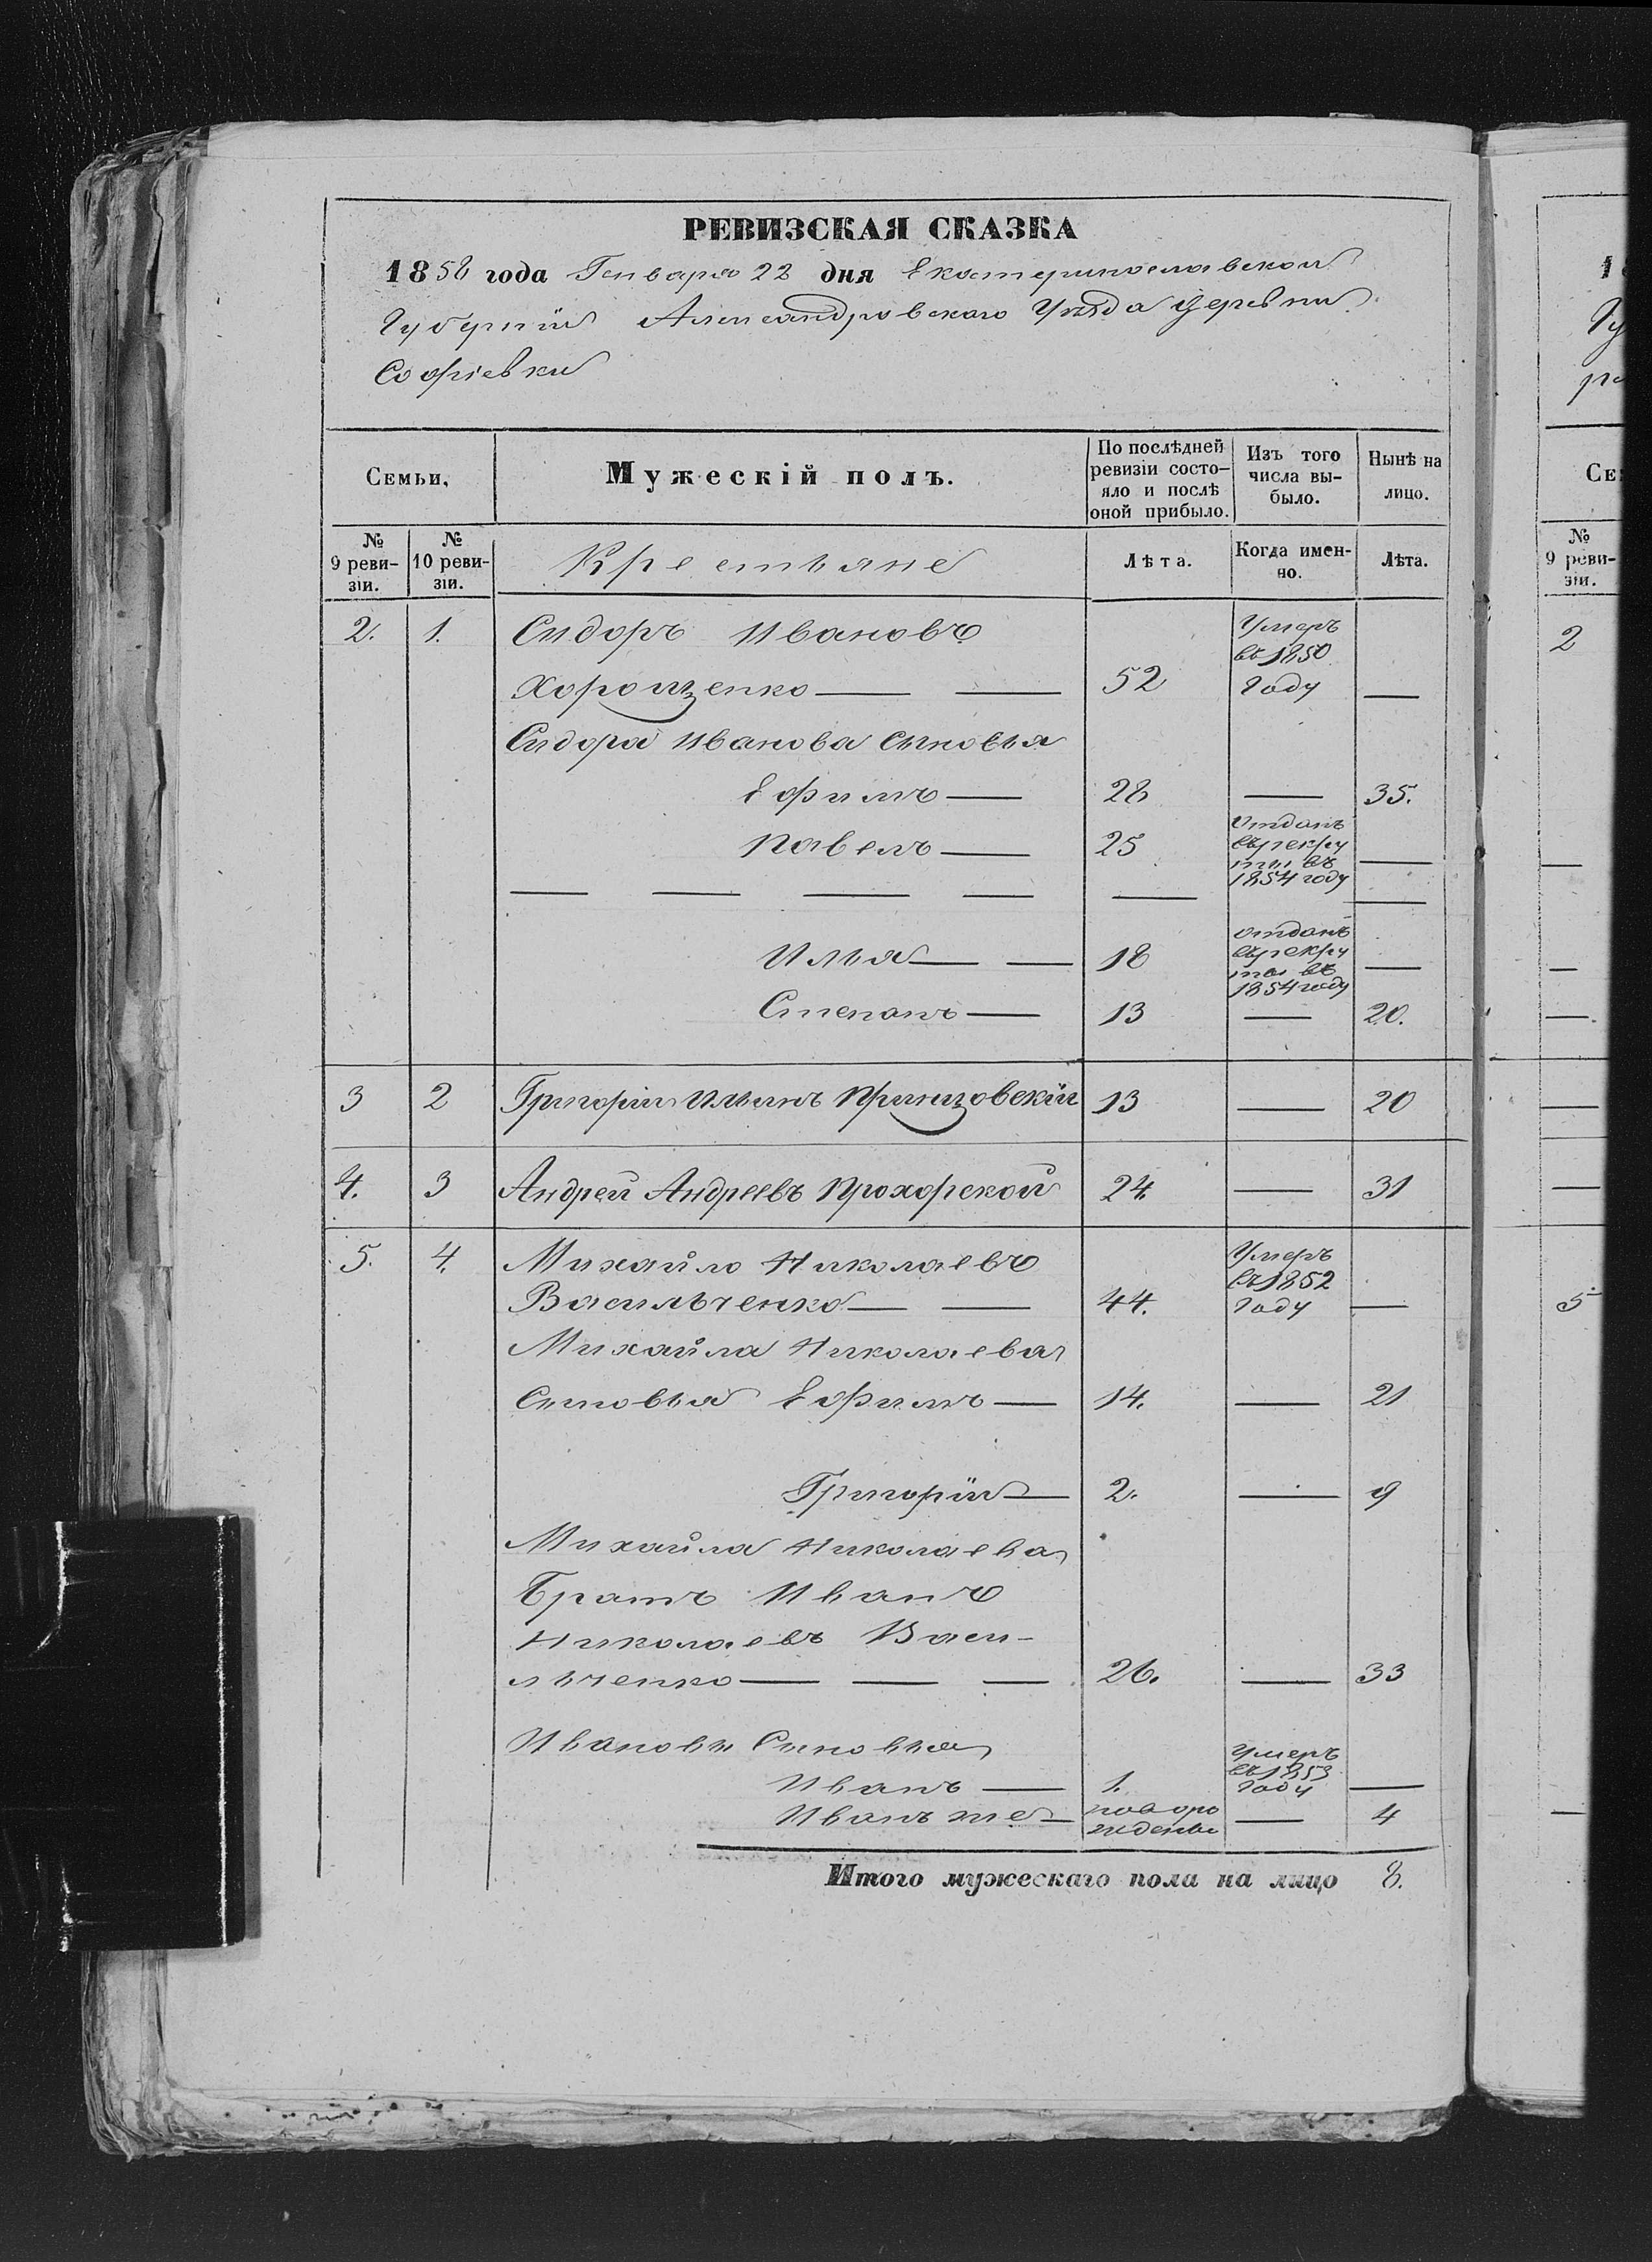 РЕВИЗСКАЯ СКАЗКА
1858 года Генваря 22 дня Екатеринославской
Губерніи Александровскаго Уѣзда деревни
Софіевки
Семьи, Мужескій полъ. По послѣдней ревизіи состо-яло и послѣ оной прибыло. Изъ того числа вы-было. Нынѣ на лицо.
№ 9 реви-зіи. № 10 реви-зіи. Крестьяне Лѣта. Когда имен-но. Лѣта.
2. 1. Сидоръ Ивановъ Умеръ въ 1850
Хорощенко — — 52 году —
Сидора Иванова сыновья
Ефимъ — 28 — 35.
Павелъ — 25 отданъ въ рекру ты въ 1854 году —
— — — — — —
Илья — — 18 отданъ въ рекру ты въ 1854 году —
Степанъ — 13 — 20.
3 2 Григорій Ильинъ 13 — 20
4. 3 Андрей Андреевъ Прохорской 24. — 31
5. 4. Михайло Николаевъ Умеръ въ 1852
Васильченко — — 44. году —
Михайла Николаева
Сыновья Ефимъ — 14. — 21
Григорій — 2. — 9
Михайла Николаева
Братъ Иванъ
Николаевъ Васи-
льченко — — — 26. — 33
Ивановы Сыновья
Иванъ — 1. Умеръ въ 1853 году —
Иванъ же — новоро жденны — 4
Итого мужескаго пола на лицо 8.
1
Гу
Се
№
9 реви-
зіи.
2
5